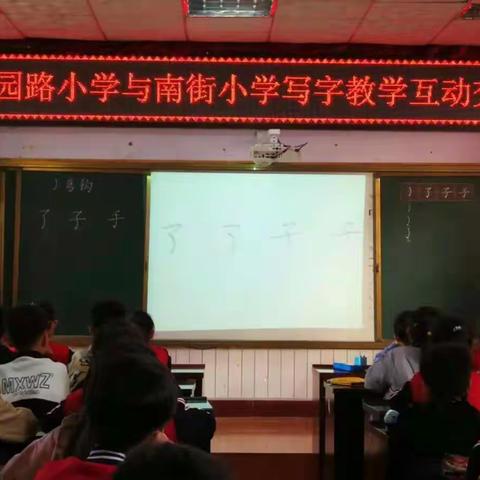 园路小学与南街小学写字教学互动交
亅弯钩
了 子 手
了 了 子 子
了 了 子 子
MXWZ